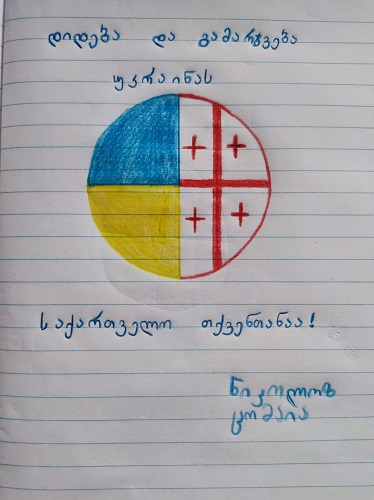 დიდება და გამარჯვება
უკრაინას
საქართველო თქვენთანაა!
ნიკოლოზ
ცომაია